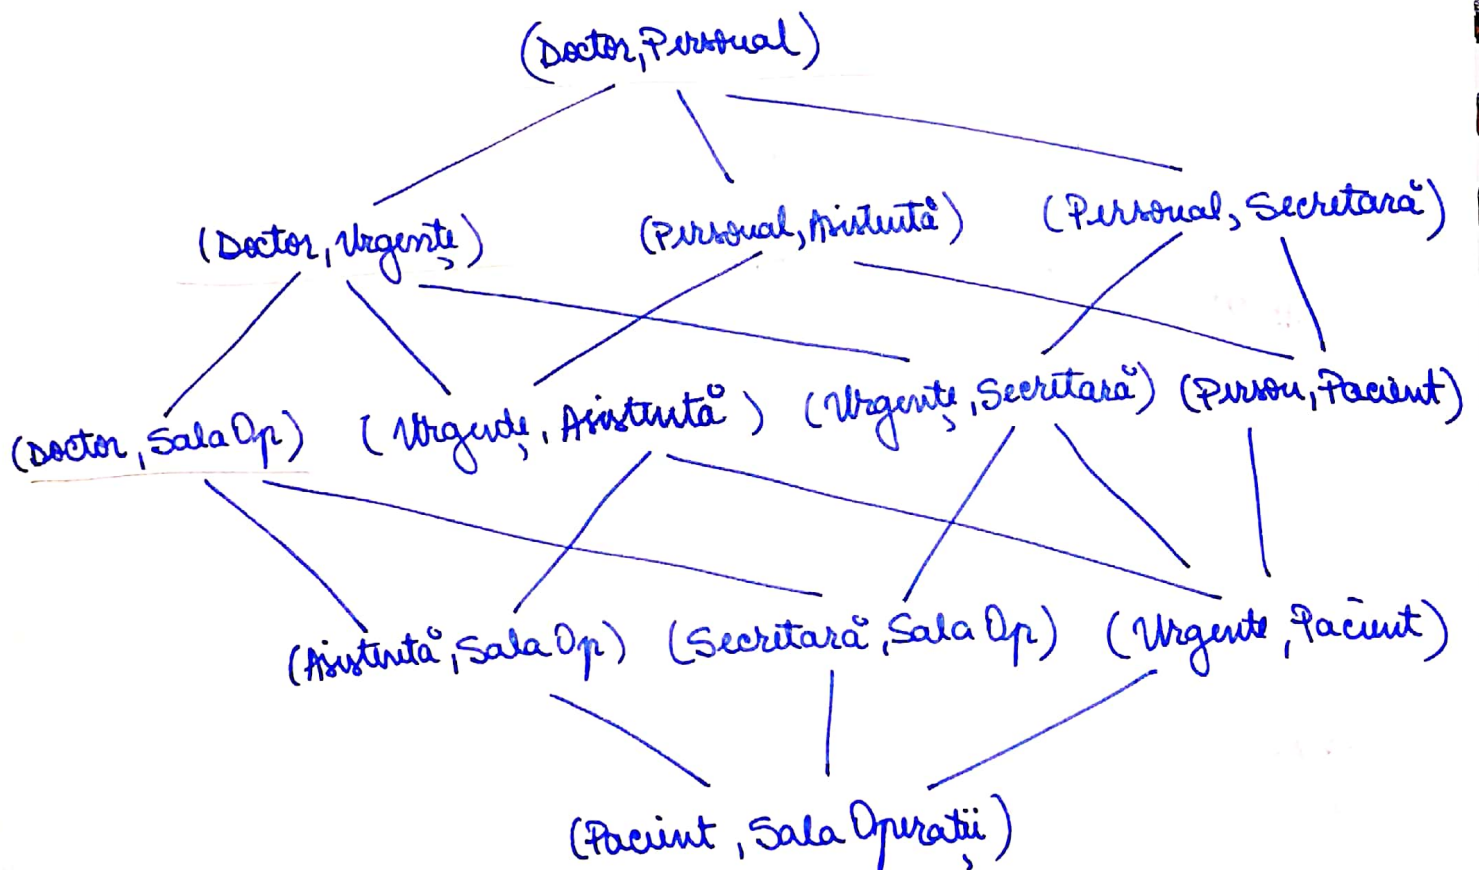 (Doctor, Personal)
(Doctor, Urgențe) (Personal, Asistentă) (Personal, Secretară)
(Doctor, Sala Op) (Urgențe, Asistentă) (Urgențe, Secretară) (Person, Pacient)
(Asistentă, Sala Op) (Secretară, Sala Op) (Urgente, Pacient)
(Pacient, Sala Operații)